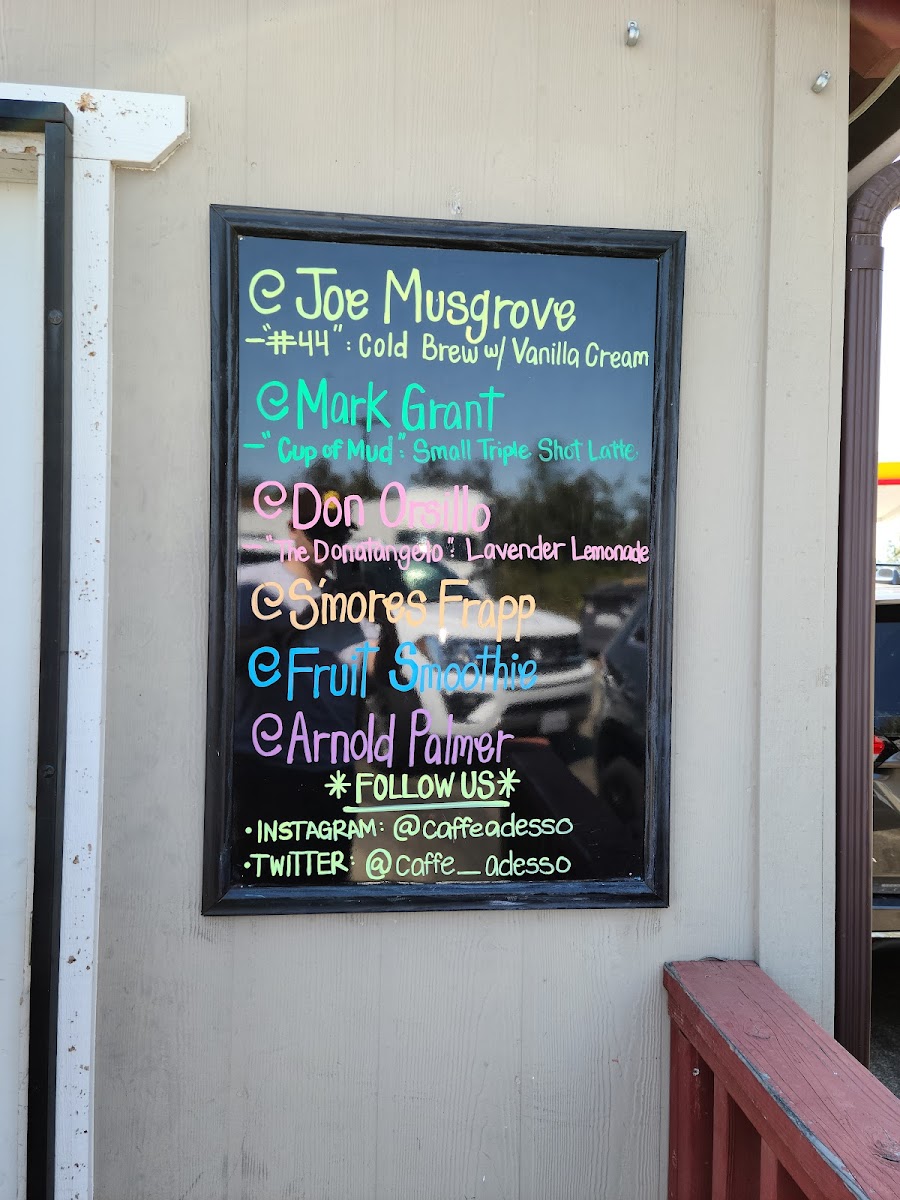 Joe Musgrove
-"#44": Cold Brew w/ Vanilla Cream
Mark Grant
-"Cup of Mud": Small Triple Shot Latte
Don Orsillo
-"The Donatangelo": Lavender Lemonade
S'mores Frapp
Fruit Smoothie
Arnold Palmer
*FOLLOW US*
•INSTAGRAM: @caffeadesso
•TWITTER: @caffe_adesso